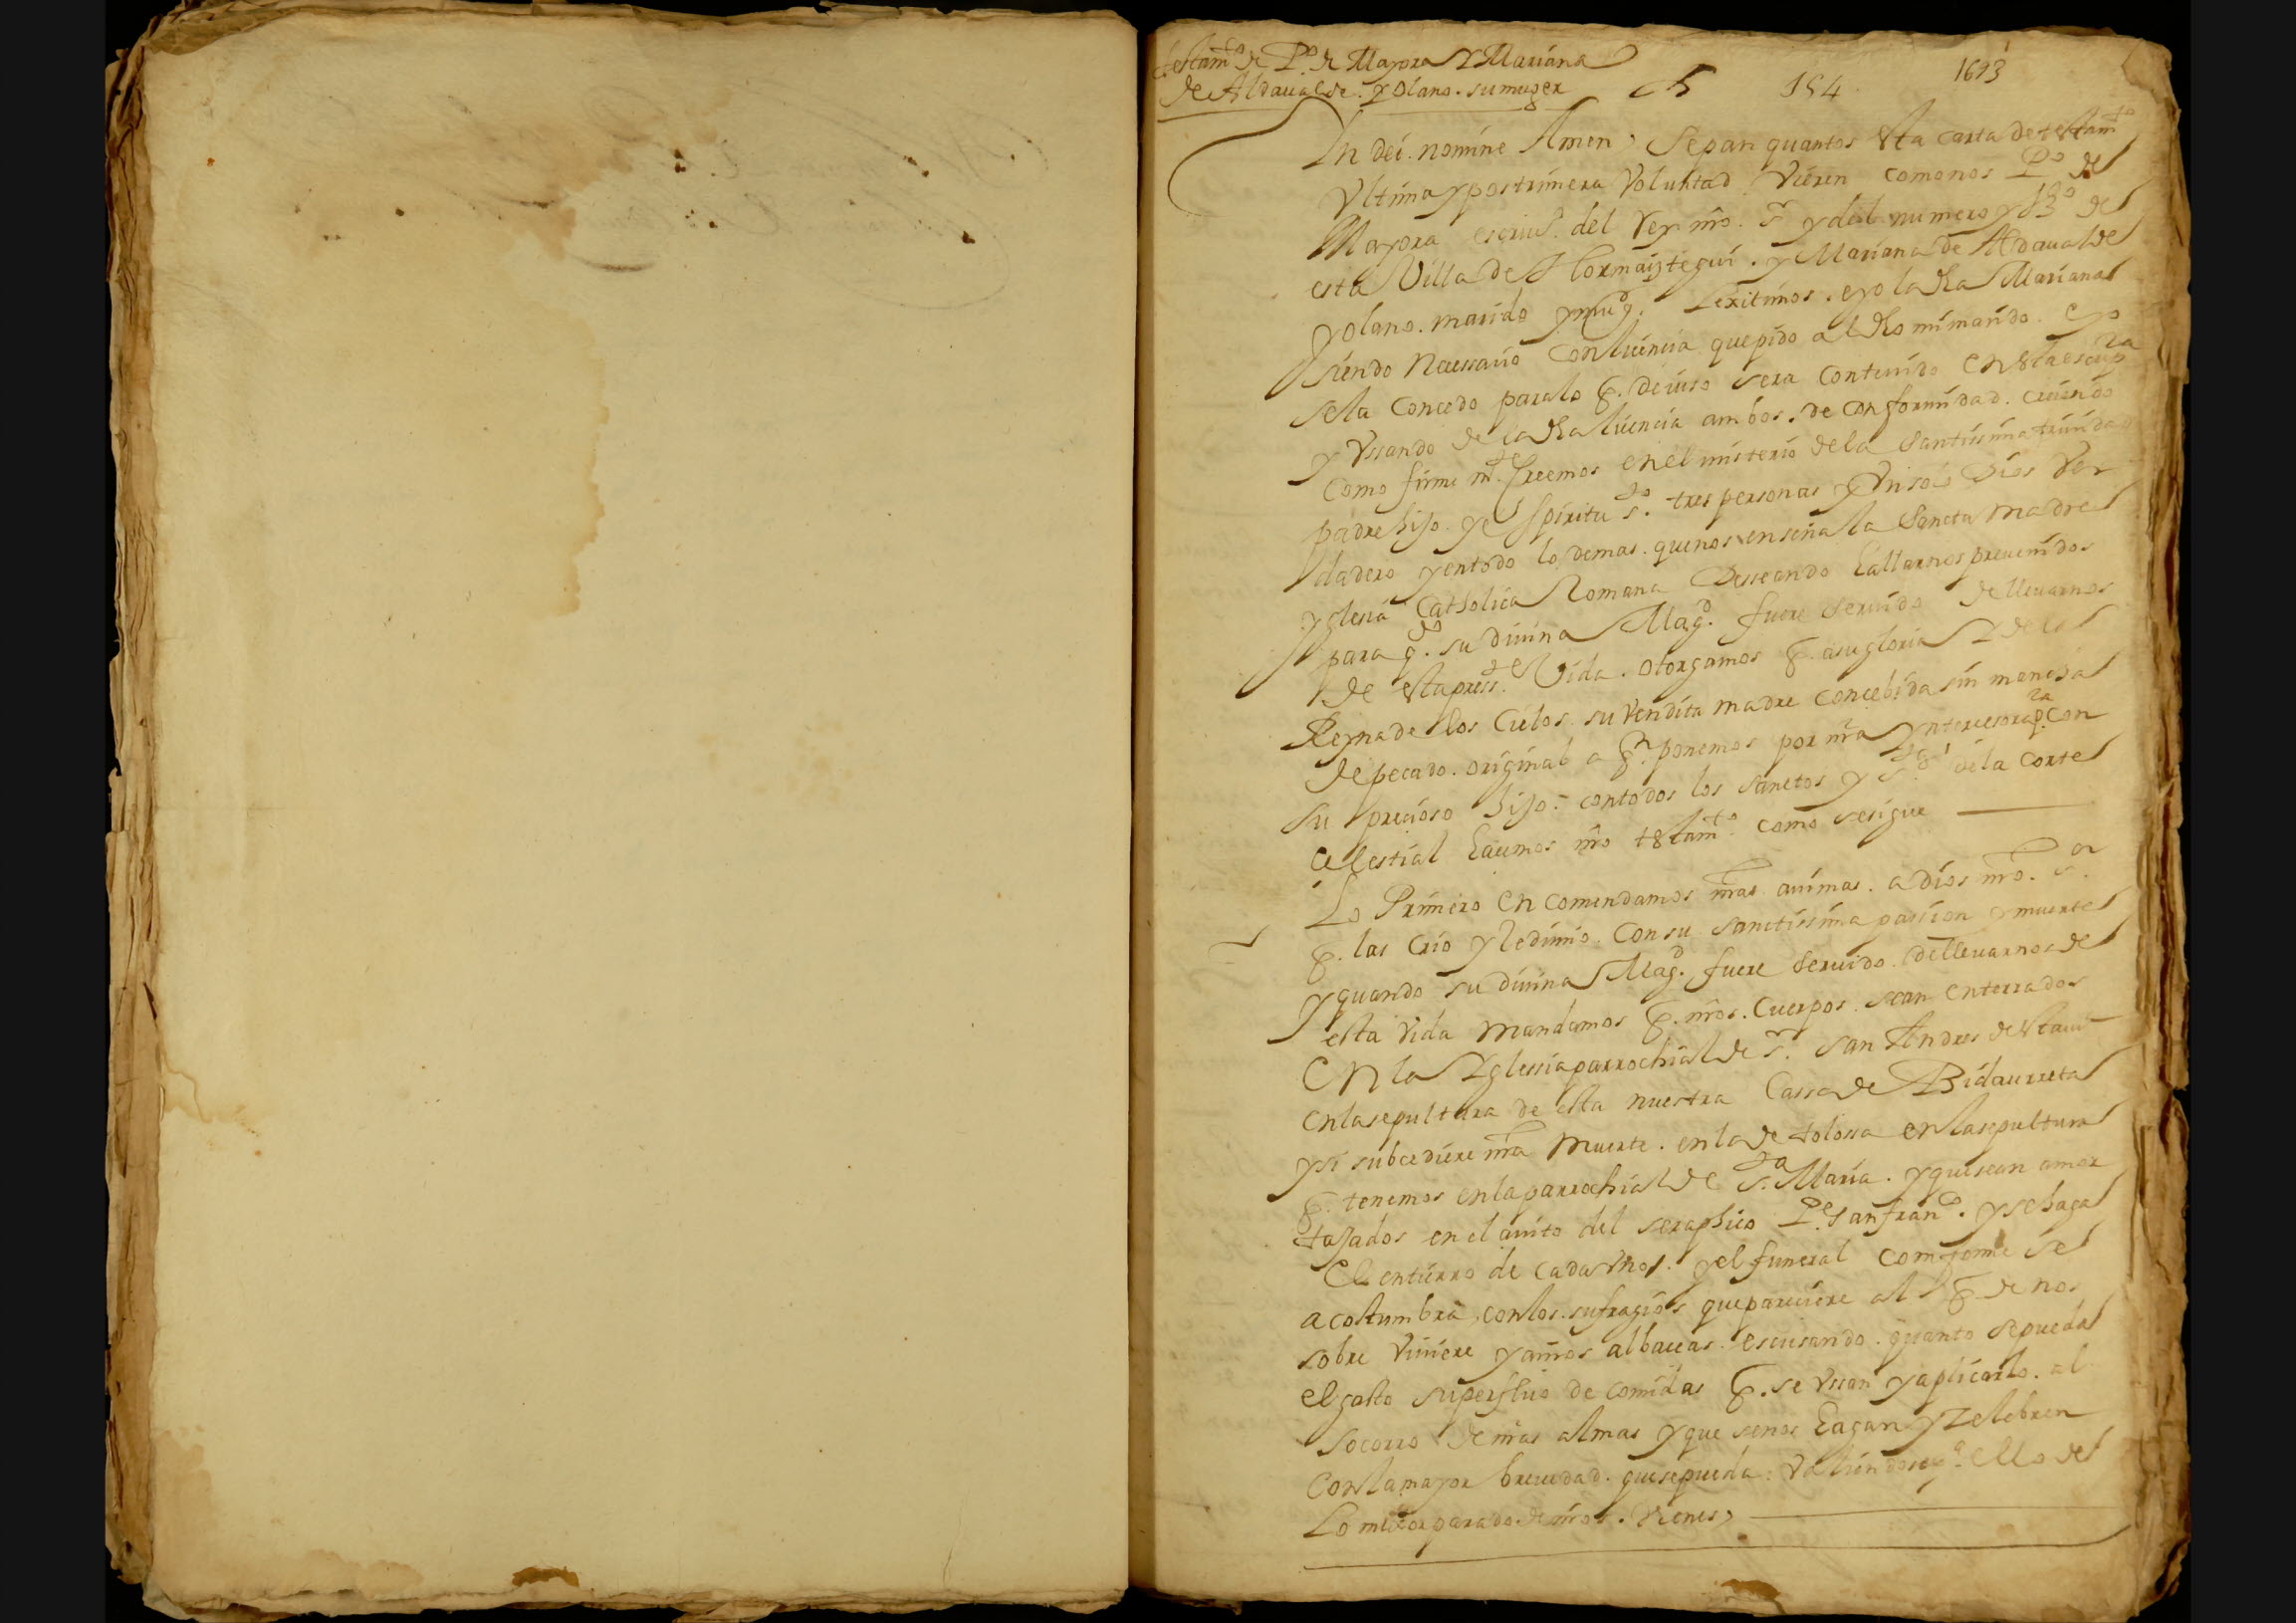 testamto de Po de Mayora Y Mariana
de Aldaualde. y olano. su muger
154
1693
In dei. nomine Amen, Sepan quantos esta carta de testamto
Vltima y postrimera Voluntad Vieren como nos Po de
Mayora escriuo. del Rey nro. sr y del numero y de
esta Villa de Hormaiztegui. y Mariana de Aldaualde
y olano. marido y mugr. Lexitimos. e yo la dha Mariana
siendo Necessario con licencia que pido al dho mi marido. e yo
se la Concedo para lo q. de iuso sera Contenido en esta escripra
y Vssando de la dha licencia ambos. de conformidad. creiendo
Como firme mte. Creemos en el misterio de la Santissima trinidad
padre hijo. y espiritu sto. tres personas y Vn solo Dios Ver
dadero y en todo lo demas. que nos enseña la Sancta madre
yglesia Catholica Romana Desseando hallarnos preuenidos
para qdo. su diuina Magd. fuere seruido de lleuarnos
de esta presste. Vida. otorgamos q. a su gloria Y de la
Reyna de los Cielos. su Vendita madre concebida sin mancha
de pecado. original a qn. ponemos por nra Yntercesora pa. con
su precioso hijo. con todos los sanctos y stas de la corte
Celestial hacimos nro testamto. como se sigue
Lo Primero en comendamos nras animas. a dios nro. sor.
q. las Crio y Redimio. Con su sanctissima passion y muerte
y quando su diuina Magd. fuere seruido. de lleuarnos de
esta Vida mandamos q. nros. Cuerpos. sean enterrados
En la Yglessia parrochial de sr. san Andres de
en la sepultura de esta nuestra Cassa de Bidaurreta
y si subcediere nra muerte. en la de tolossa en la sepultura
q. tenemos en la parrochial de sta. Maria. y que sean amor
tajados en el auito del seraphico Pe. san franco. y se haga
El entierro de cada vno. y el funeral comforme se
acostumbra, con los. sufragios que pareciere al q. de nos
sobre Viuiere y a nros albaceas. escusando. quanto se pueda
el gasto superfluo de comidas q. se Vssan y aplicarlo. al
socorro de nras almas y que se nos hagan y Zelebren
Con la mayor breuedad. que se pueda. Valiendose pa. ello de
Lo mejor parado de nros. Vienes,